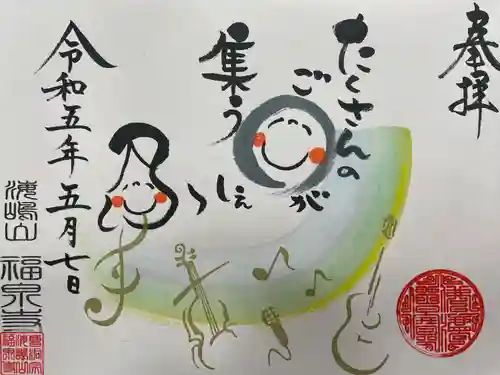 奉拝
たくさんの
ご
が
集う
しぇ
令和五年五月七日
海嶋山 福泉寺